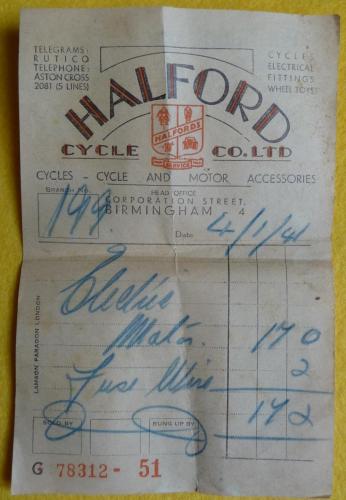 TELEGRAMS:
RUTICO
TELEPHONE:
ASTON CROSS
2081 (5 LINES)
CYCLES
ELECTRICAL
FITTINGS
WHEEL TOYS
HALFORD
HALFORDS
SERVICE
CYCLE CO. LTD
CYCLES - CYCLE AND MOTOR ACCESSORIES
BRANCH NO.
HEAD OFFICE
CORPORATION STREET,
BIRMINGHAM 4
199
Date 4/1/41
Electric
Motor. 17 0
Fuse Wire 2
17 2
LAMSON PARAGON LONDON
SOLD BY
RUNG UP BY
G 78312 - 51